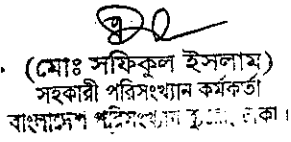 (মোঃ সফিকুল ইসলাম)
সহকারী পরিসংখ্যান কর্মকর্তা
বাংলাদেশ পরিসংখ্যান ঢাকা।